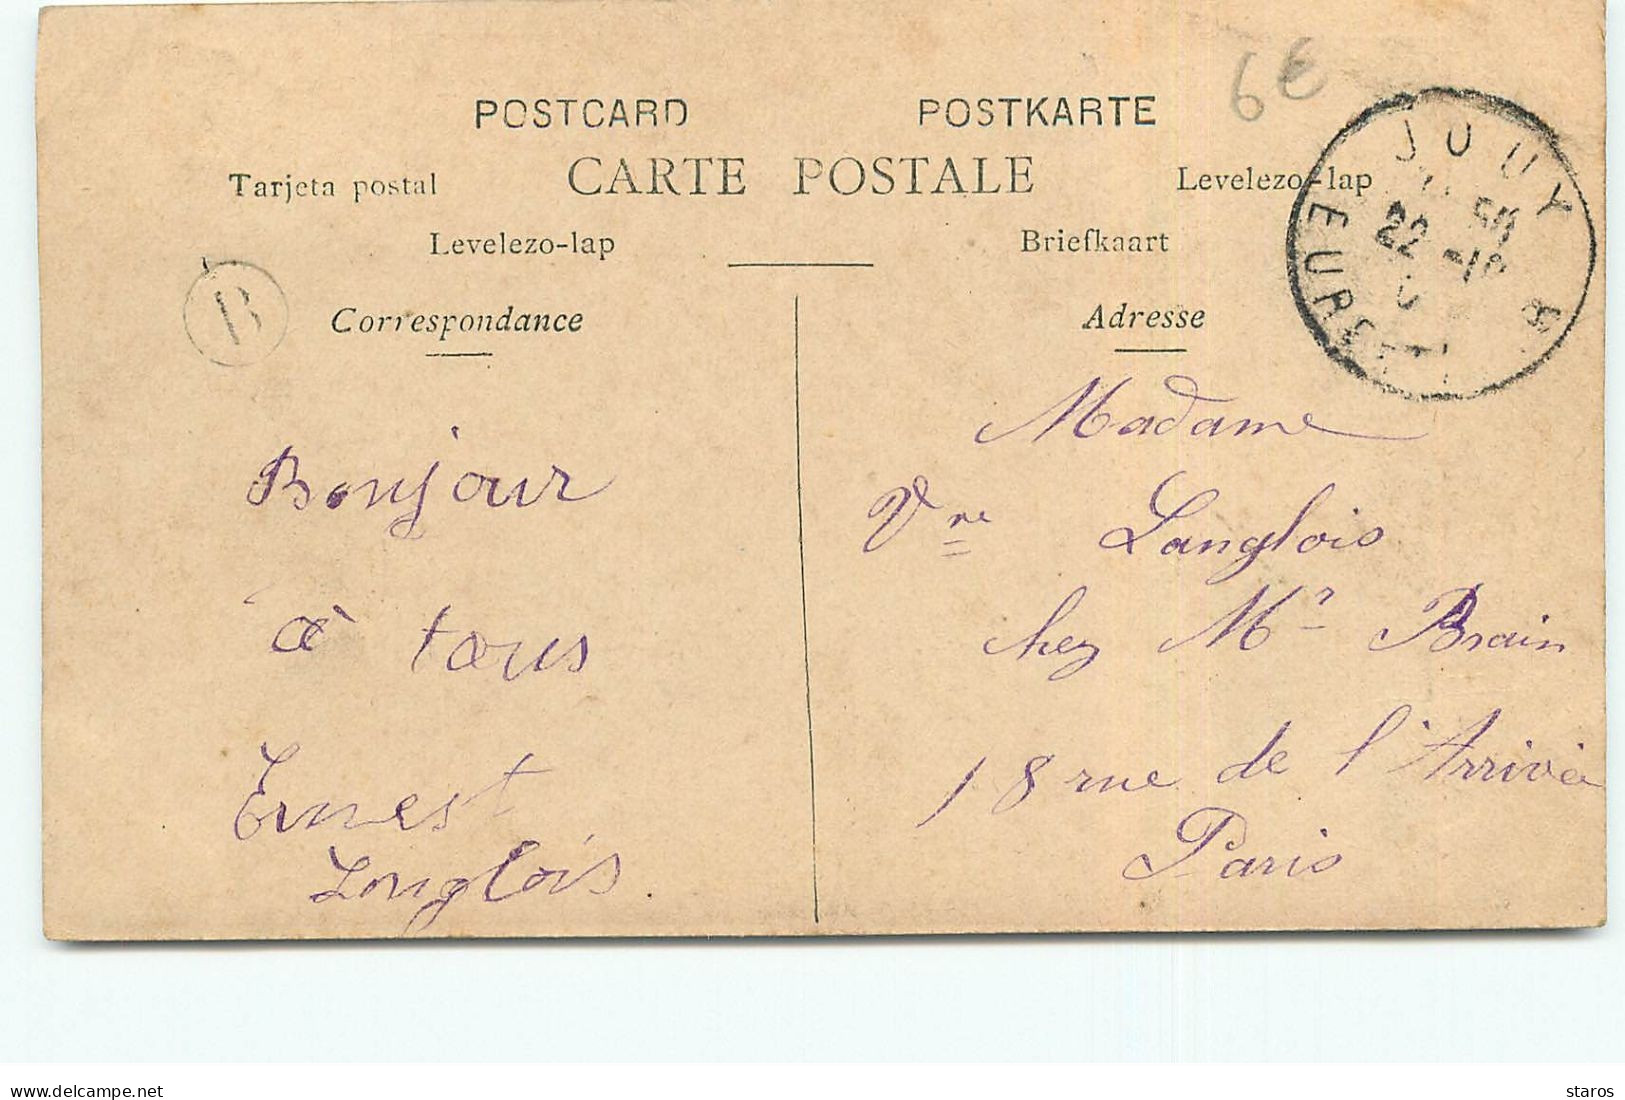 6€
POSTCARD
POSTKARTE
Tarjeta postal
CARTE POSTALE
Levelezo-lap
Levelezo-lap
Briefkaart
JOUY
EURE
22 -10
B
Correspondance
Adresse
Bonjour
à tous
Ernest
Langlois.
Madame
Vve Langlois
chez Mr Brain
18 rue de l'Arrivée
Paris
www.delcampe.net
staros